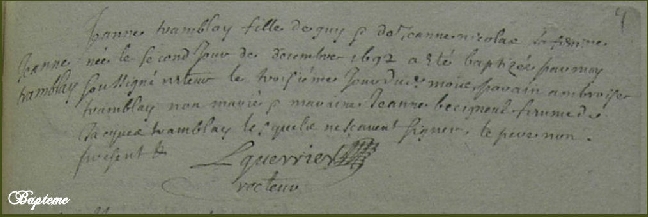 Jeanne tramblay fille de guy & de Jeanne nicolas sa femme
Jeanne tramblay
née le second Jour de decembre 1692 a été baptizée par moy
soussigné recteur le troisiéme Jour du mois parain ambroise
tramblay non marié & maraine Jeanne femme de
Jacques tramblay lesquels ne scavent signer le pere non
present &
Lguerrier
recteur
Bapteme